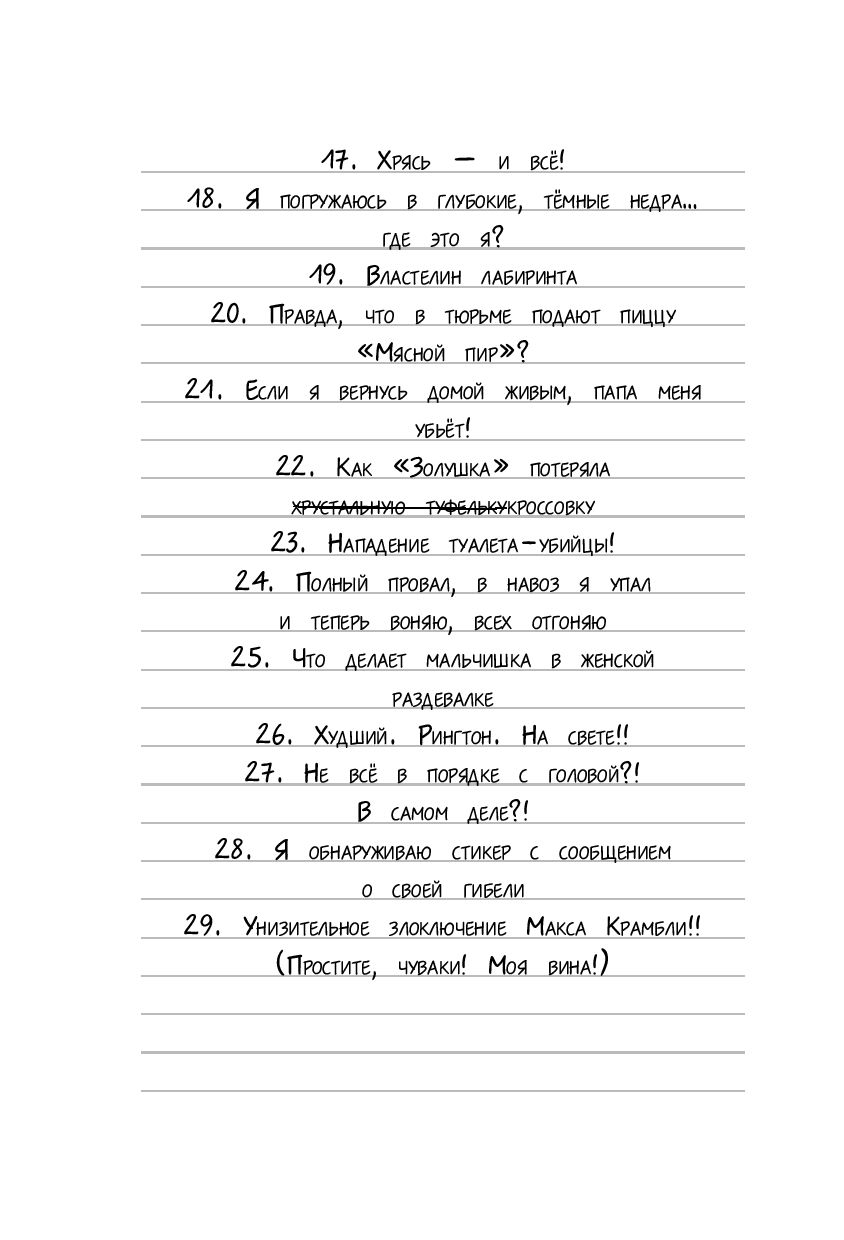 17. Хрясь – и всё!
18. Я погружаюсь в глубокие, тёмные недра...
где это я?
19. Властелин лабиринта
20. Правда, что в тюрьме подают пиццу
«Мясной пир»?
21. Если я вернусь домой живым, папа меня
убьёт!
22. Как «Золушка» потеряла
хрустальную туфелькукроссовку
23. Нападение туалета-убийцы!
24. Полный провал, в навоз я упал
и теперь воняю, всех отгоняю
25. Что делает мальчишка в женской
раздевалке
26. Худший. Рингтон. На свете!!
27. Не всё в порядке с головой?!
В самом деле?!
28. Я обнаруживаю стикер с сообщением
о своей гибели
29. Унизительное злоключение Макса Крамбли!!
(Простите, чуваки! Моя вина!)